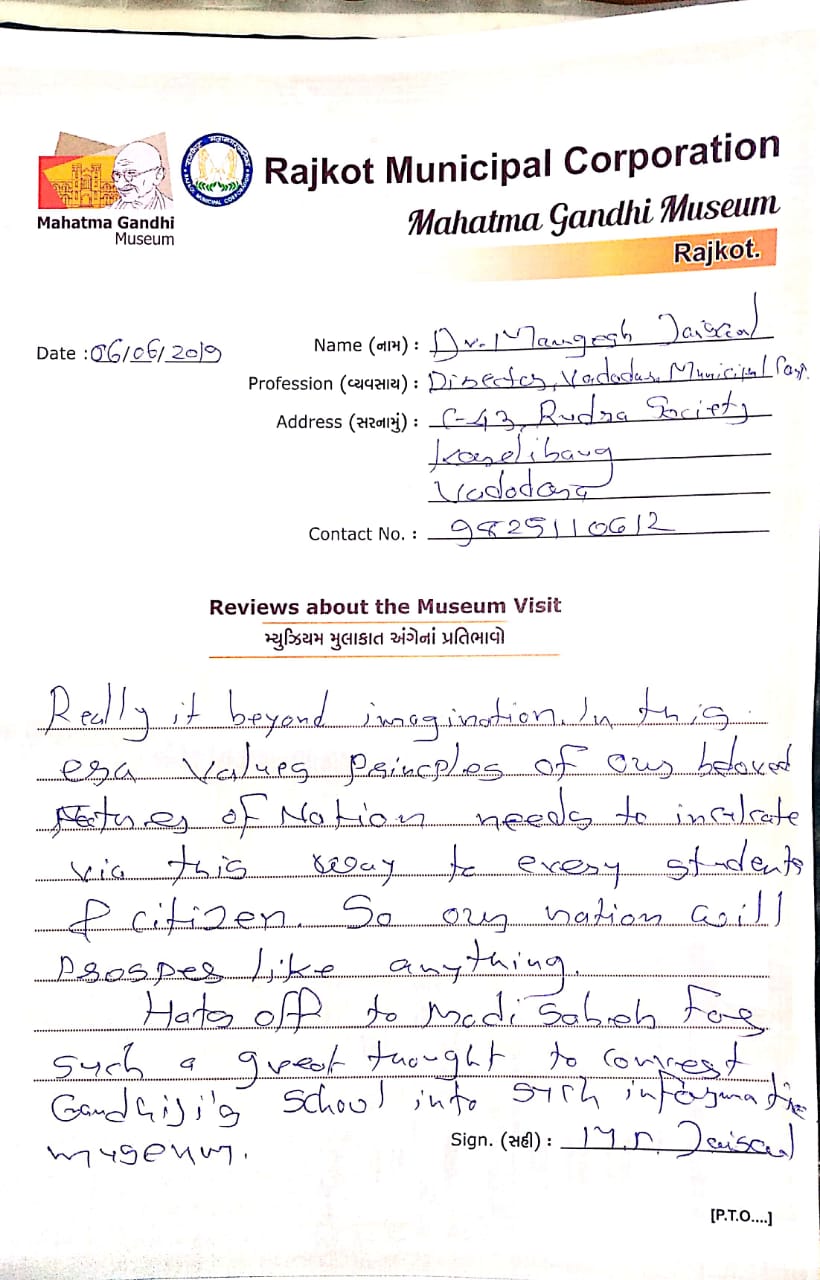 Mahatma Gandhi
Museum
Rajkot Municipal Corporation
Mahatma Gandhi Museum
Rajkot.
Date : 06/06/2019
Name (નામ) : Dr. Mangesh Jaiswal
Profession (વ્યવસાય) : Director, Vadodara Municipal Corp.
Address (સરનામું) : C-43, Rudra Society
Karelibaug
Vadodara
Contact No. : 9825110612
Reviews about the Museum Visit
મ્યુઝિયમ મુલાકાત અંગેનાં પ્રતિભાવો
Really it beyond imagination. In this
era values principles of our beloved
of Nation needs to inculcate
via this way to every students
& citizen. So our nation will
prosper like anything.
Hats off to Modi Saheb for
such a great thought to convert
Gandhiji's school into such informative
museum.
Sign. (સહી) : M. Jaiswal
[P.T.O....]